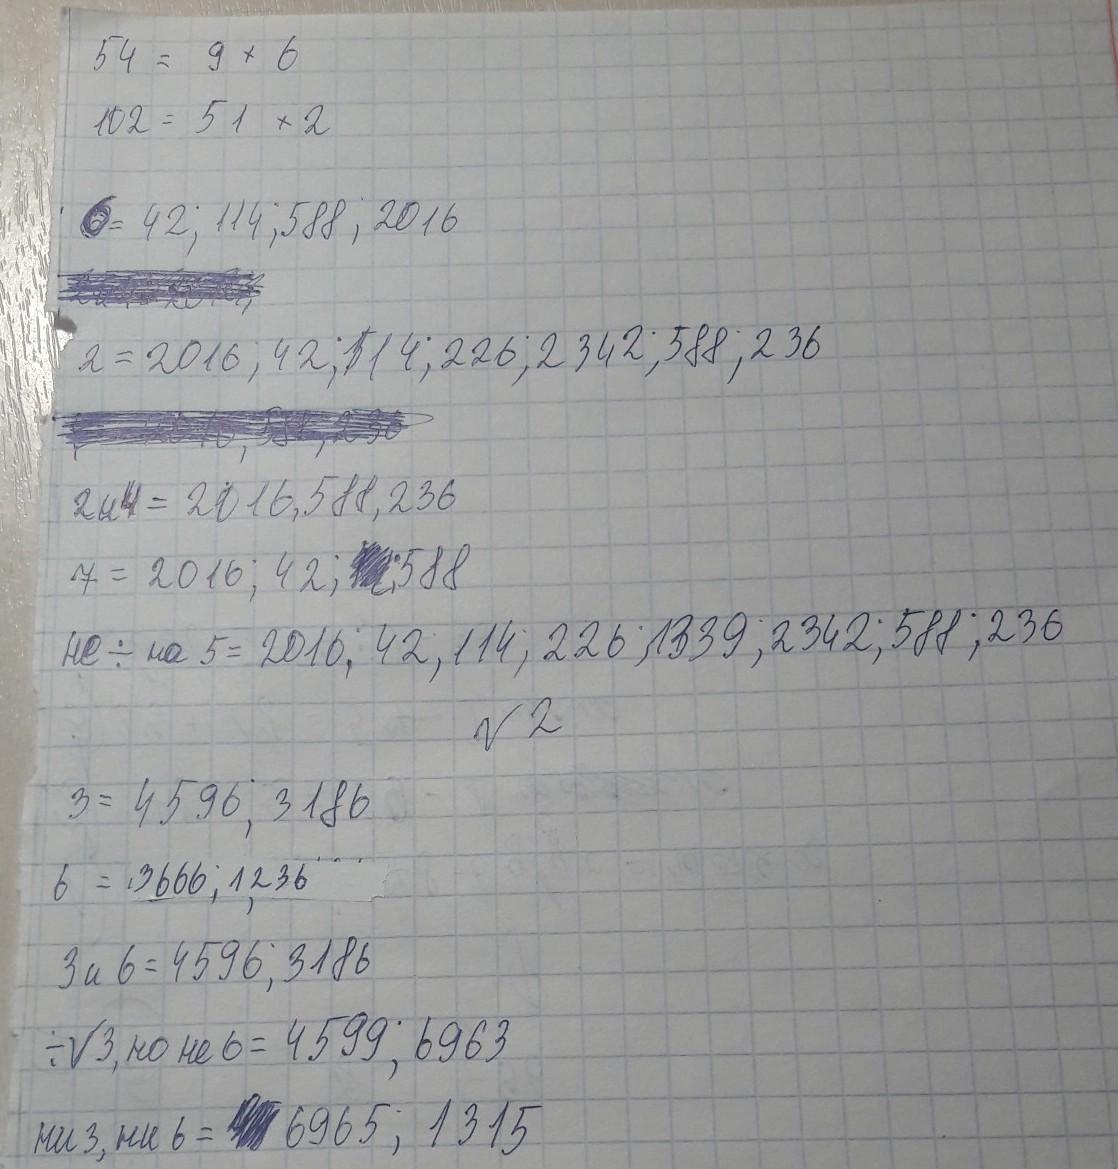 54 = 9 × 6
102 = 51 × 2
6 = 42; 114; 588; 2016
2 = 2016; 42; 114; 226; 2342; 588; 236
2 и 4 = 2016, 588, 236
7 = 2016; 42; 588
не ÷ на 5 = 2016; 42; 114; 226; 1339; 2342; 588; 236
√2
3 = 4596; 3186
6 = 3666; 1236
3 и 6 = 4596; 3186
÷ √3, но не 6 = 4599; 6963
ни 3, ни 6 = 6965; 1315